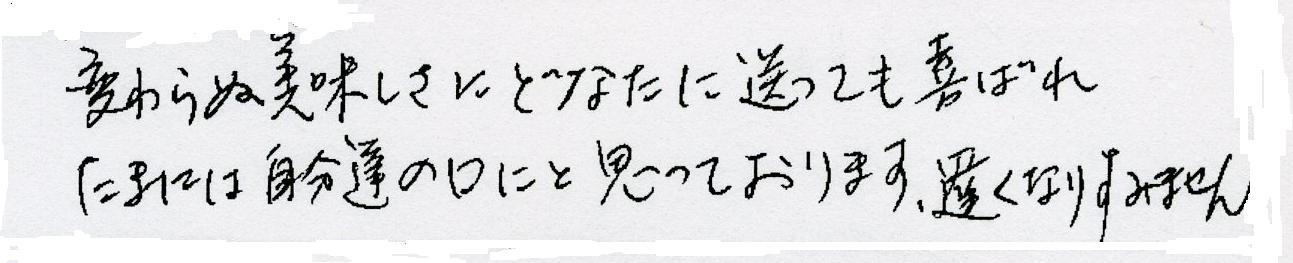 変わらぬ美味しさにどなたに送っても喜ばれ
たまには自分達の口にと思っております、遅くなりすみません